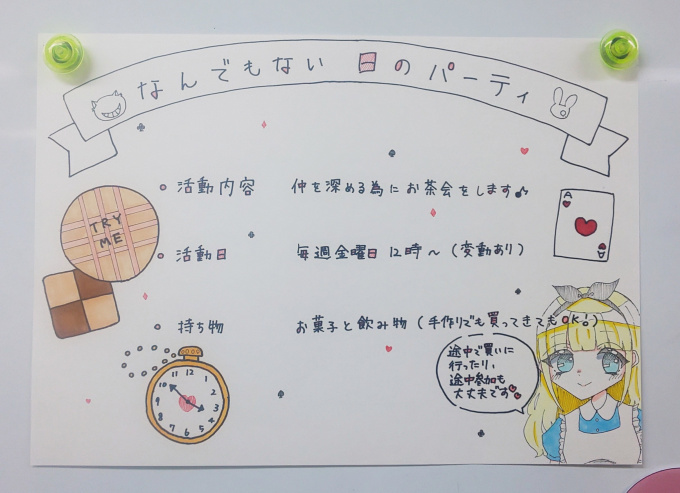 なんでもない日のパーティ
活動内容 仲を深める為にお茶会をします♪
A
TRY
ME
A
活動日 毎週金曜日 12時～(変動あり)
持ち物 お菓子と飲み物(手作りでも買ってきてもOK!)
途中で買いに
行ったり、
途中参加も
大丈夫です
12
1
2
3
4
5
6
7
8
9
10
11